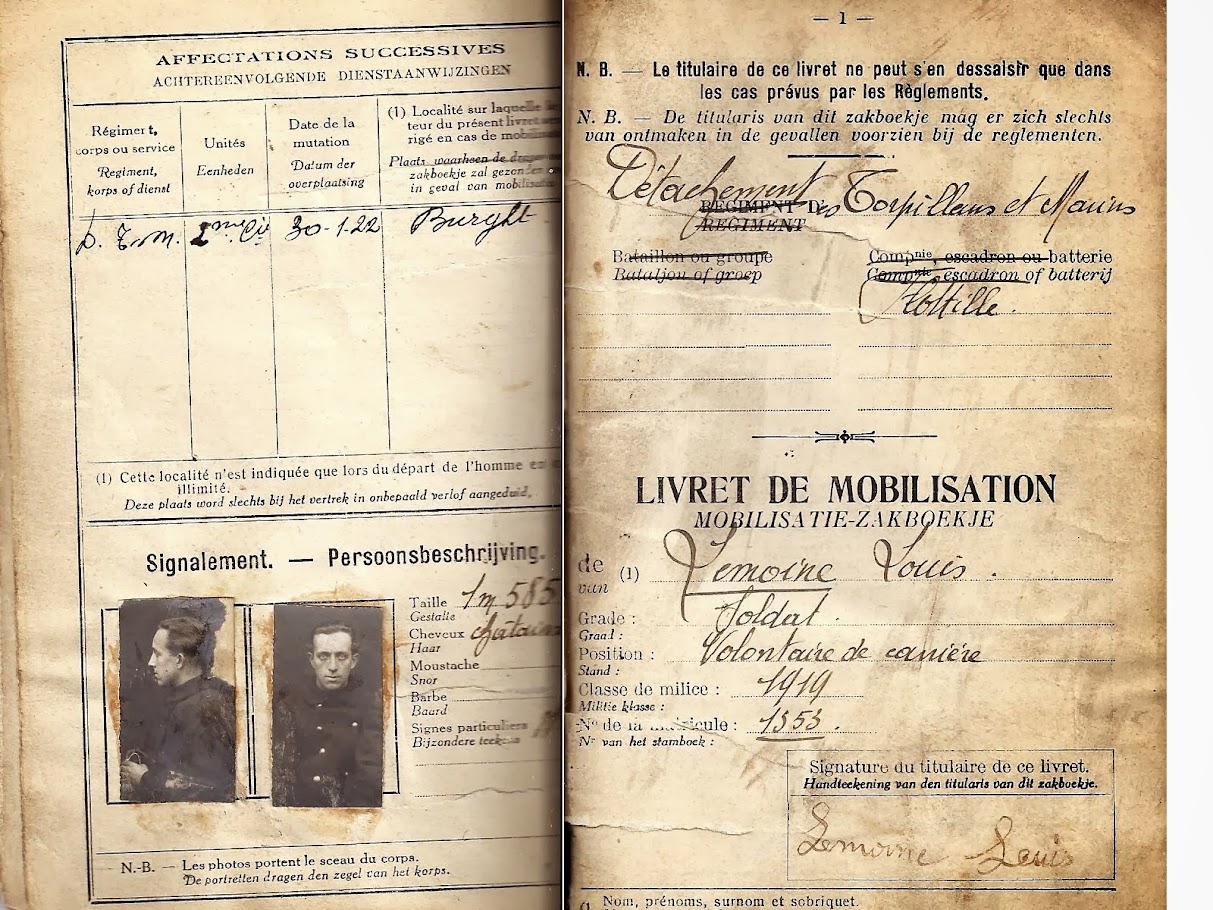 AFFECTATIONS SUCCESSIVES
ACHTEREENVOLGENDE DIENSTAANWIJZINGEN
Régiment,
corps ou service
Regiment,
korps of dienst
Unités
Eenheden
Date de la
mutation
Datum der
overplaatsing
(1) Localité sur laquelle le
teur du présent livret
rigé en cas de mobilis
Plaats waarheen de drager
zakboekje zal gezon
in geval van mobilis
D. T. M. 2me Cie 30-1-22 Burght
(1) Cette localité n'est indiquée que lors du départ de l'homme en
illimité.
Deze plaats word slechts bij het vertrek in onbepaald verlof aangeduid.
Signalement. — Persoonsbeschrijving.
Taille 1m 585
Gestalte
Cheveux châtain
Haar
Moustache
Snor
Barbe
Baard
Signes particuliers
Bijzondere teekens
N.-B. — Les photos portent le sceau du corps.
De portretten dragen den zegel van het korps.
— 1 —
N. B. — Le titulaire de ce livret ne peut s'en dessaisir que dans
les cas prévus par les Règlements.
N. B. — De titularis van dit zakboekje mag er zich slechts
van ontmaken in de gevallen voorzien bij de reglementen.
Détachement des Torpilleurs et Marins
REGIMENT DE
REGIMENT
Bataillon ou groupe
Bataljon of groep
Compnie, escadron ou batterie
Compnie escadron of batterij
Flottille.
LIVRET DE MOBILISATION
MOBILISATIE-ZAKBOEKJE
de (1) Lemoine Louis.
van
Grade : Soldat.
Graad :
Position : Volontaire de carrière
Stand :
Classe de milice : 1919
Militie klasse :
No de la matricule : 1353.
Nr van het stamboek :
Signature du titulaire de ce livret.
Handteekening van den titularis van dit zakboekje.
Lemoine Louis
Nom, prénoms, surnom et sobriquet.